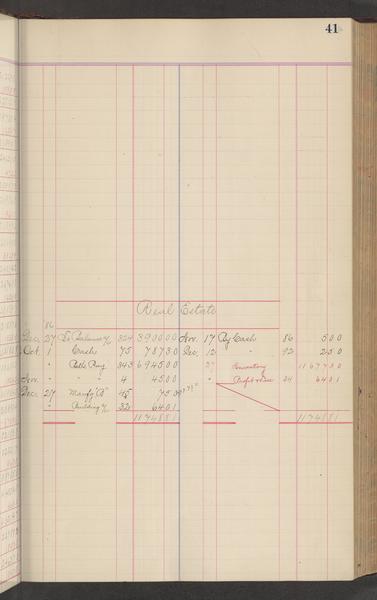 41
Real Estate
86
Dec. 27 To Balance 324 390000 Nov. 17 By Cash 86 500
Oct. 1 " Cash 75 78730 Dec. 12 " " 92 250
" " 343 694500 27 " Inventory 1167730
Nov. " " 4 4500 " " Profit & Loss 24 6401
Dec. 27 " "B" 45 750
" " Building 32 6401
1174881 1174881